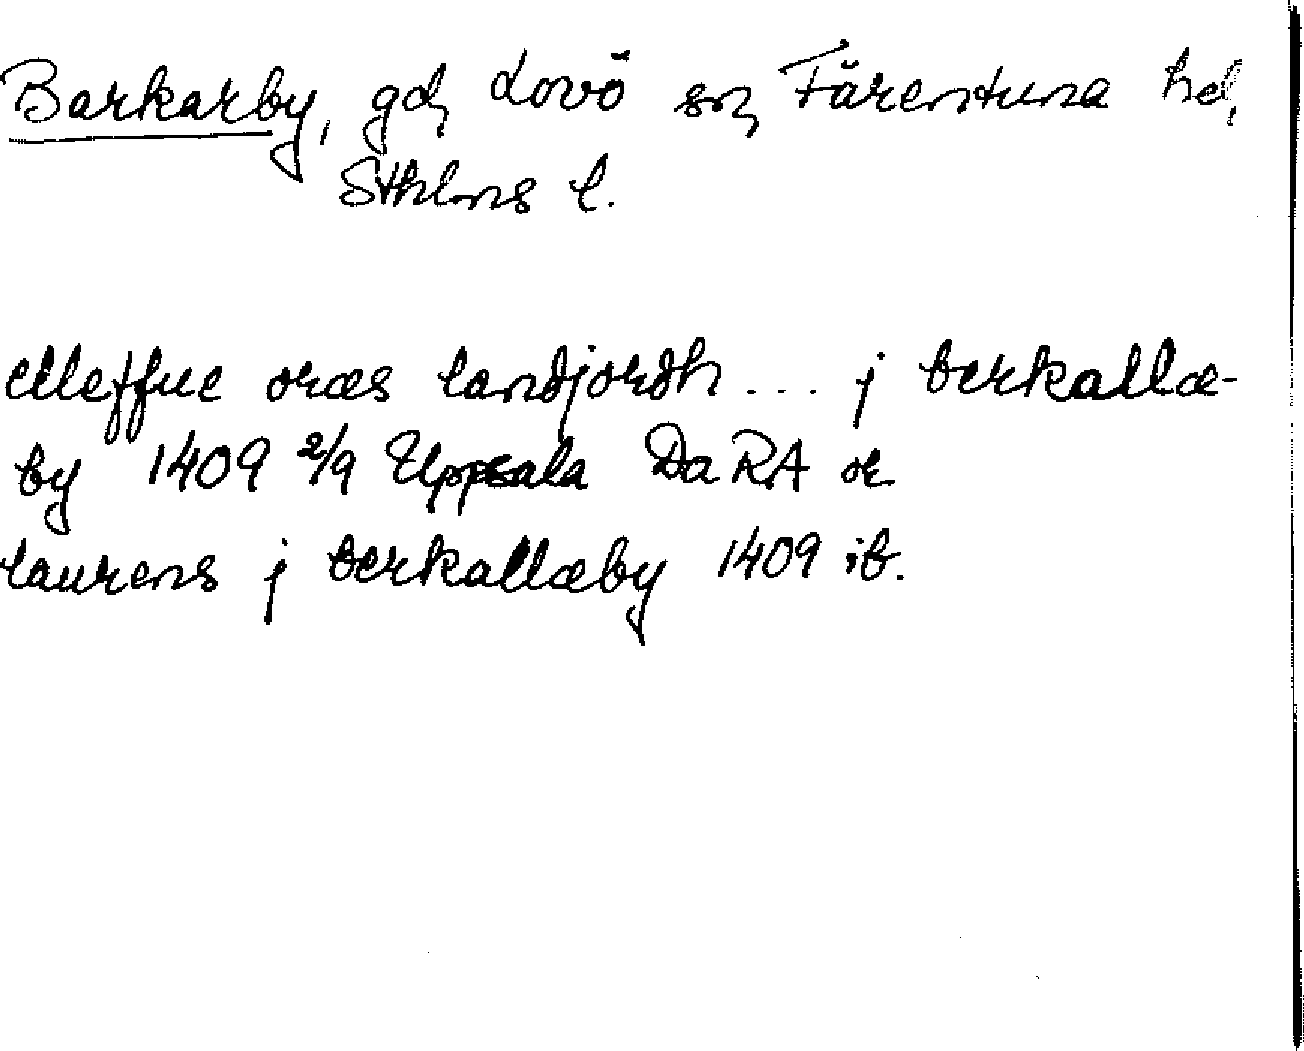 Barkarby, gd, Lovö sn, Färentuna hd,
Sthlms l.
elleffue oræs landjordh ... j berkallæ-
by 1409 2/9 Uppsala Da RA or
laurens j berkallæby 1409 ib.